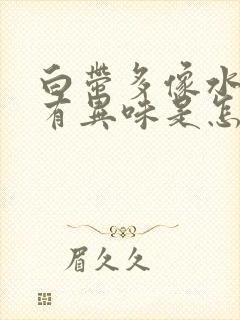 白帶多像水
有異味是怎
眉久久